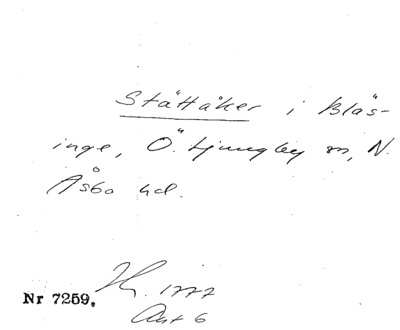 Stättåker i Bläs-
inge, Ö. Ljungby sn, N.
Åsbo hd.
Nr 7259. 1777
Akt 6